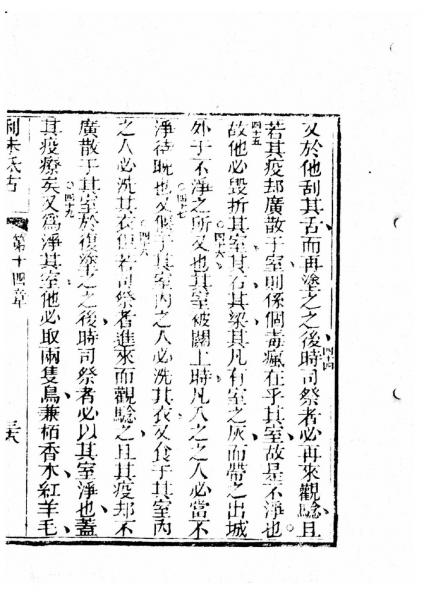 又於他刮其舌而再塗之之後時司祭者必再來觀驗、且
四十四
若其疫却廣散于室、則係個毒瘋在乎其室、故是不淨也。
四十五
故他必毀折其室、其石、其梁、其凡有室之灰、而帶之出城
外于不淨之所。又也其室被關上時、凡入之之人必當不
四十六
淨待晚也。又偃于其室內之人必洗其衣、又食于其室內
四十七
之人必洗其衣。但若司祭者進來而觀驗之、且其疫却不
四十八
廣散于其室於復塗之之後時、司祭者必以其室淨也、蓋
其疫療矣。又為淨其室、他必取兩隻鳥、兼栢香木、紅羊毛、
四十九
第十四章